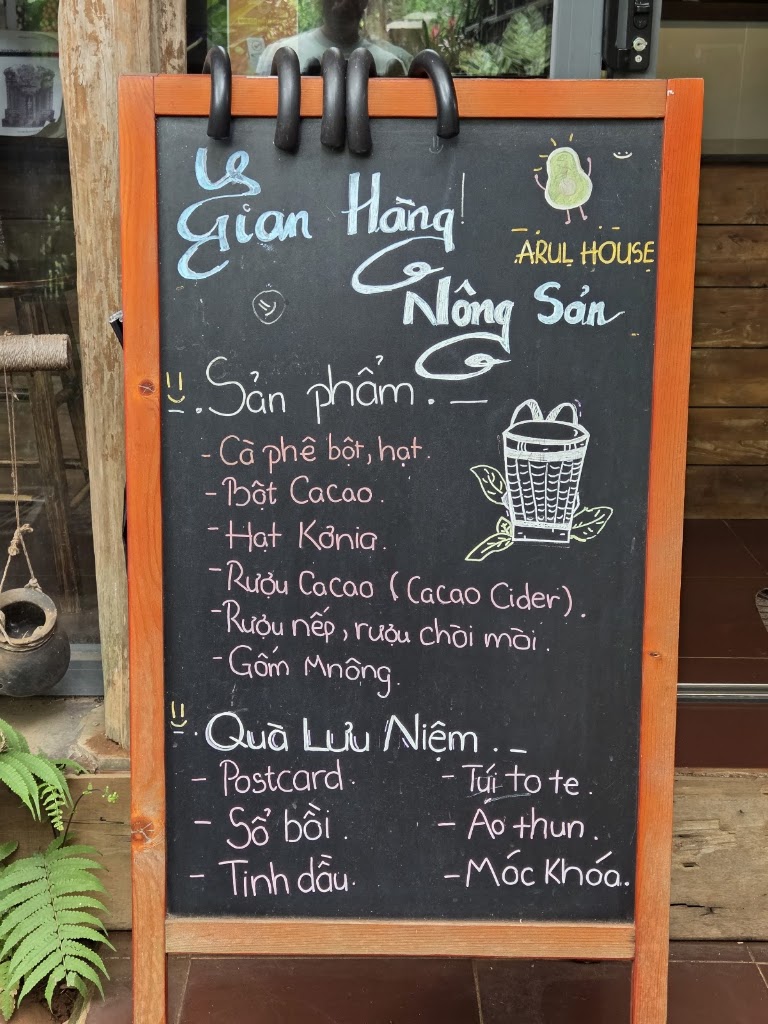 Gian Hàng
Nông Sản
ARUL HOUSE
Sản phẩm.
- Cà phê bột, hạt.
- Bột Cacao.
- Hạt Kơnia.
- Rượu Cacao (Cacao Cider).
- Rượu nếp, rượu chòi mòi.
- Gốm Mnông.
Quà Lưu Niệm.
- Postcard.
- Sổ bồi.
- Tinh dầu.
- Túi to te.
- Ao thun.
- Móc Khóa.